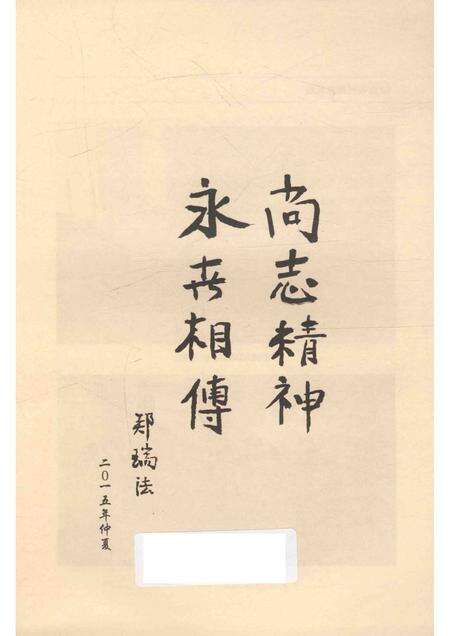 尚志精神
永世相傳
郑瑞法
二〇一五年仲夏